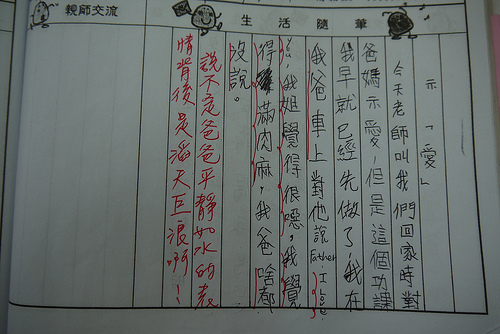 親師交流
生活隨筆
示「愛」
今天老師叫我們回家時對
爸媽示愛,但是這個功課
我早就已經先做了,我在
我爸車上對他說Father, I love
,我姐覺得很噁,我覺
得滿肉麻,我爸啥都
沒說。
說不定爸爸平靜如水的表
情背後是滔天巨浪啊!